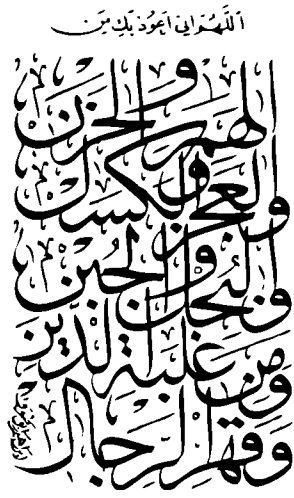 اللهم اني اعوذ بك من
الهم والحزن
والعجز والكسل
والجبن والبخل
ومن غلبة الدين
وقهر الرجال